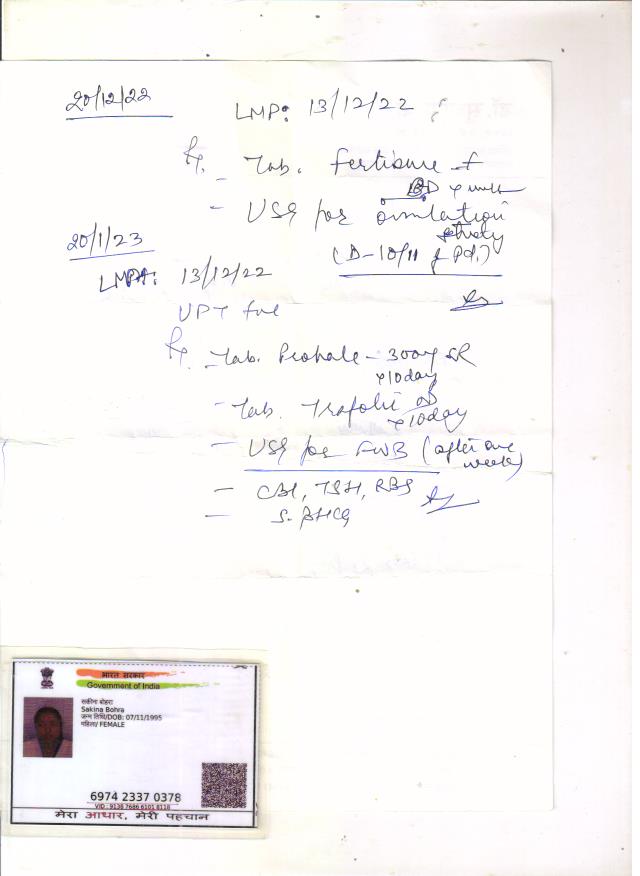 20/12/22
LMP: 13/12/22
Rx.
- Tab. Fertisure f
BD x
- USG for ovulation study
(D-10/11 of Pd.)
20/1/23
LMP: 13/12/22
UPT +ve
Rx. - Tab. - 300mg SR
x 10 day
- Tab. Trafolic OD
x 10 day
- USG for FWB (after one week)
- CBC, TSH, RBS
- S. BHCG
भारत सरकार
Government of India
सकीना बोहरा
Sakina Bohra
जन्म तिथि/DOB: 07/11/1995
महिला/ FEMALE
6974 2337 0378
VID : 9138 7686 6101 8118
मेरा आधार, मेरी पहचान